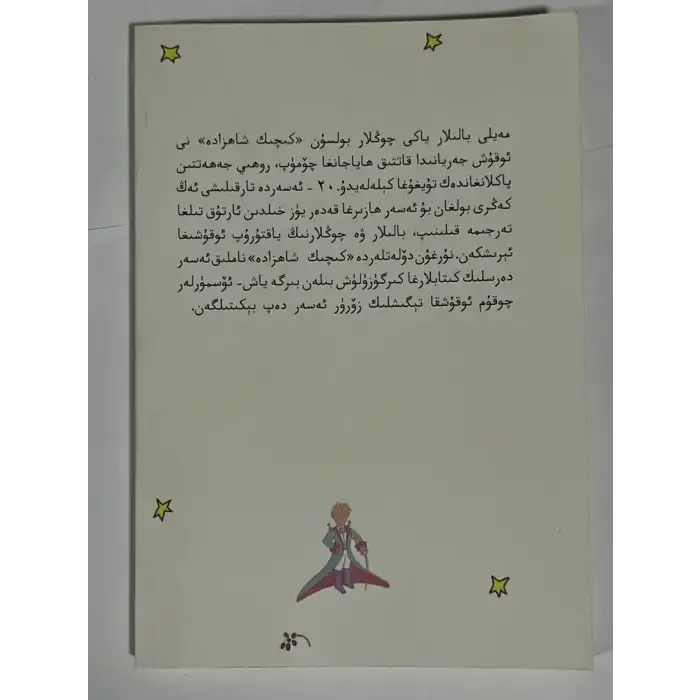 مەيلى بالىلار ياكى چوڭلار بولسۇن «كىچىك شاھزادە» نى
ئوقۇش جەريانىدا قاتتىق ھاياجانغا چۆمۈپ، روھىي جەھەتتىن
پاكلانغاندەك تۇيغۇغا كېلەلەيدۇ. ٢٠ - ئەسەردە تارقىلىشى ئەڭ
كەڭرى بولغان بۇ ئەسەر ھازىرغا قەدەر يۈز خىلدىن ئارتۇق تىلغا
تەرجىمە قىلىنىپ، بالىلار ۋە چوڭلارنىڭ ياقتۇرۇپ ئوقۇشىغا
ئېرىشكەن. نۇرغۇن دۆلەتلەردە «كىچىك شاھزادە» ناملىق ئەسەر
دەرسلىك كىتابلارغا كىرگۈزۈلۈش بىلەن بىرگە ياش - ئۆسمۈرلەر
چوقۇم ئوقۇشقا تېگىشلىك زۆرۈر ئەسەر دەپ بېكىتىلگەن.